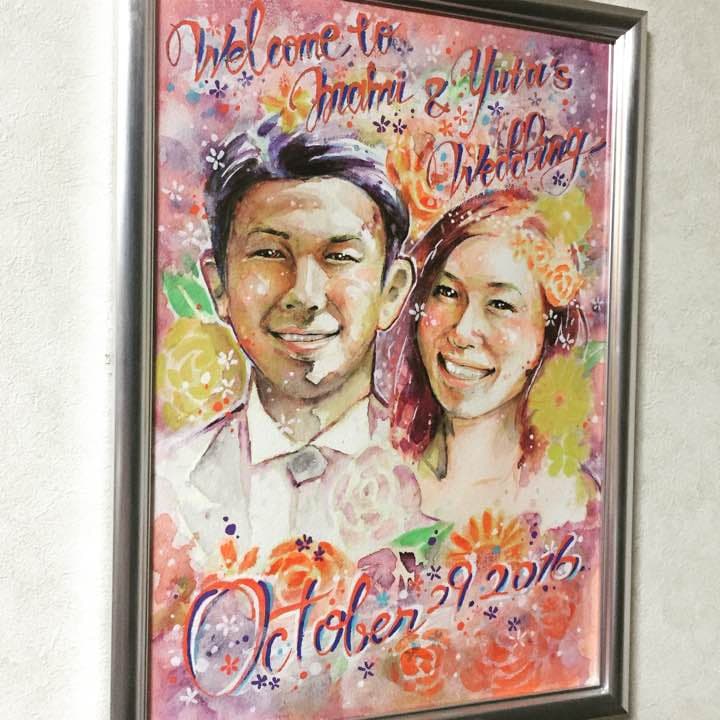 Welcome to
Mami & Yuta's
Wedding
October 29 2016